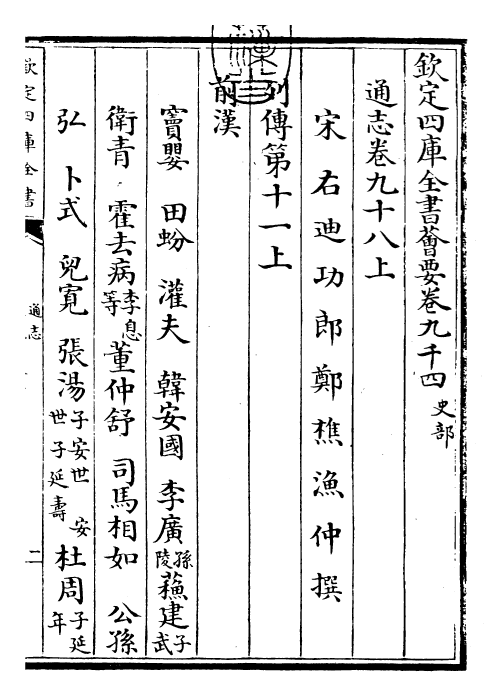 欽定四庫全書薈要卷九千四 史部
通志卷九十八上
宋右迪功郎鄭樵漁仲撰
列傳第十一上
前漢
竇嬰 田蚡 灌夫 韓安國 李廣 孫陵 蘇建 子武
衛青 霍去病 李息等 董仲舒 司馬相如 公孫
弘 卜式 兒寛 張湯 子安世 安世子延壽 杜周 子延年
欽定四庫全書
通志
二